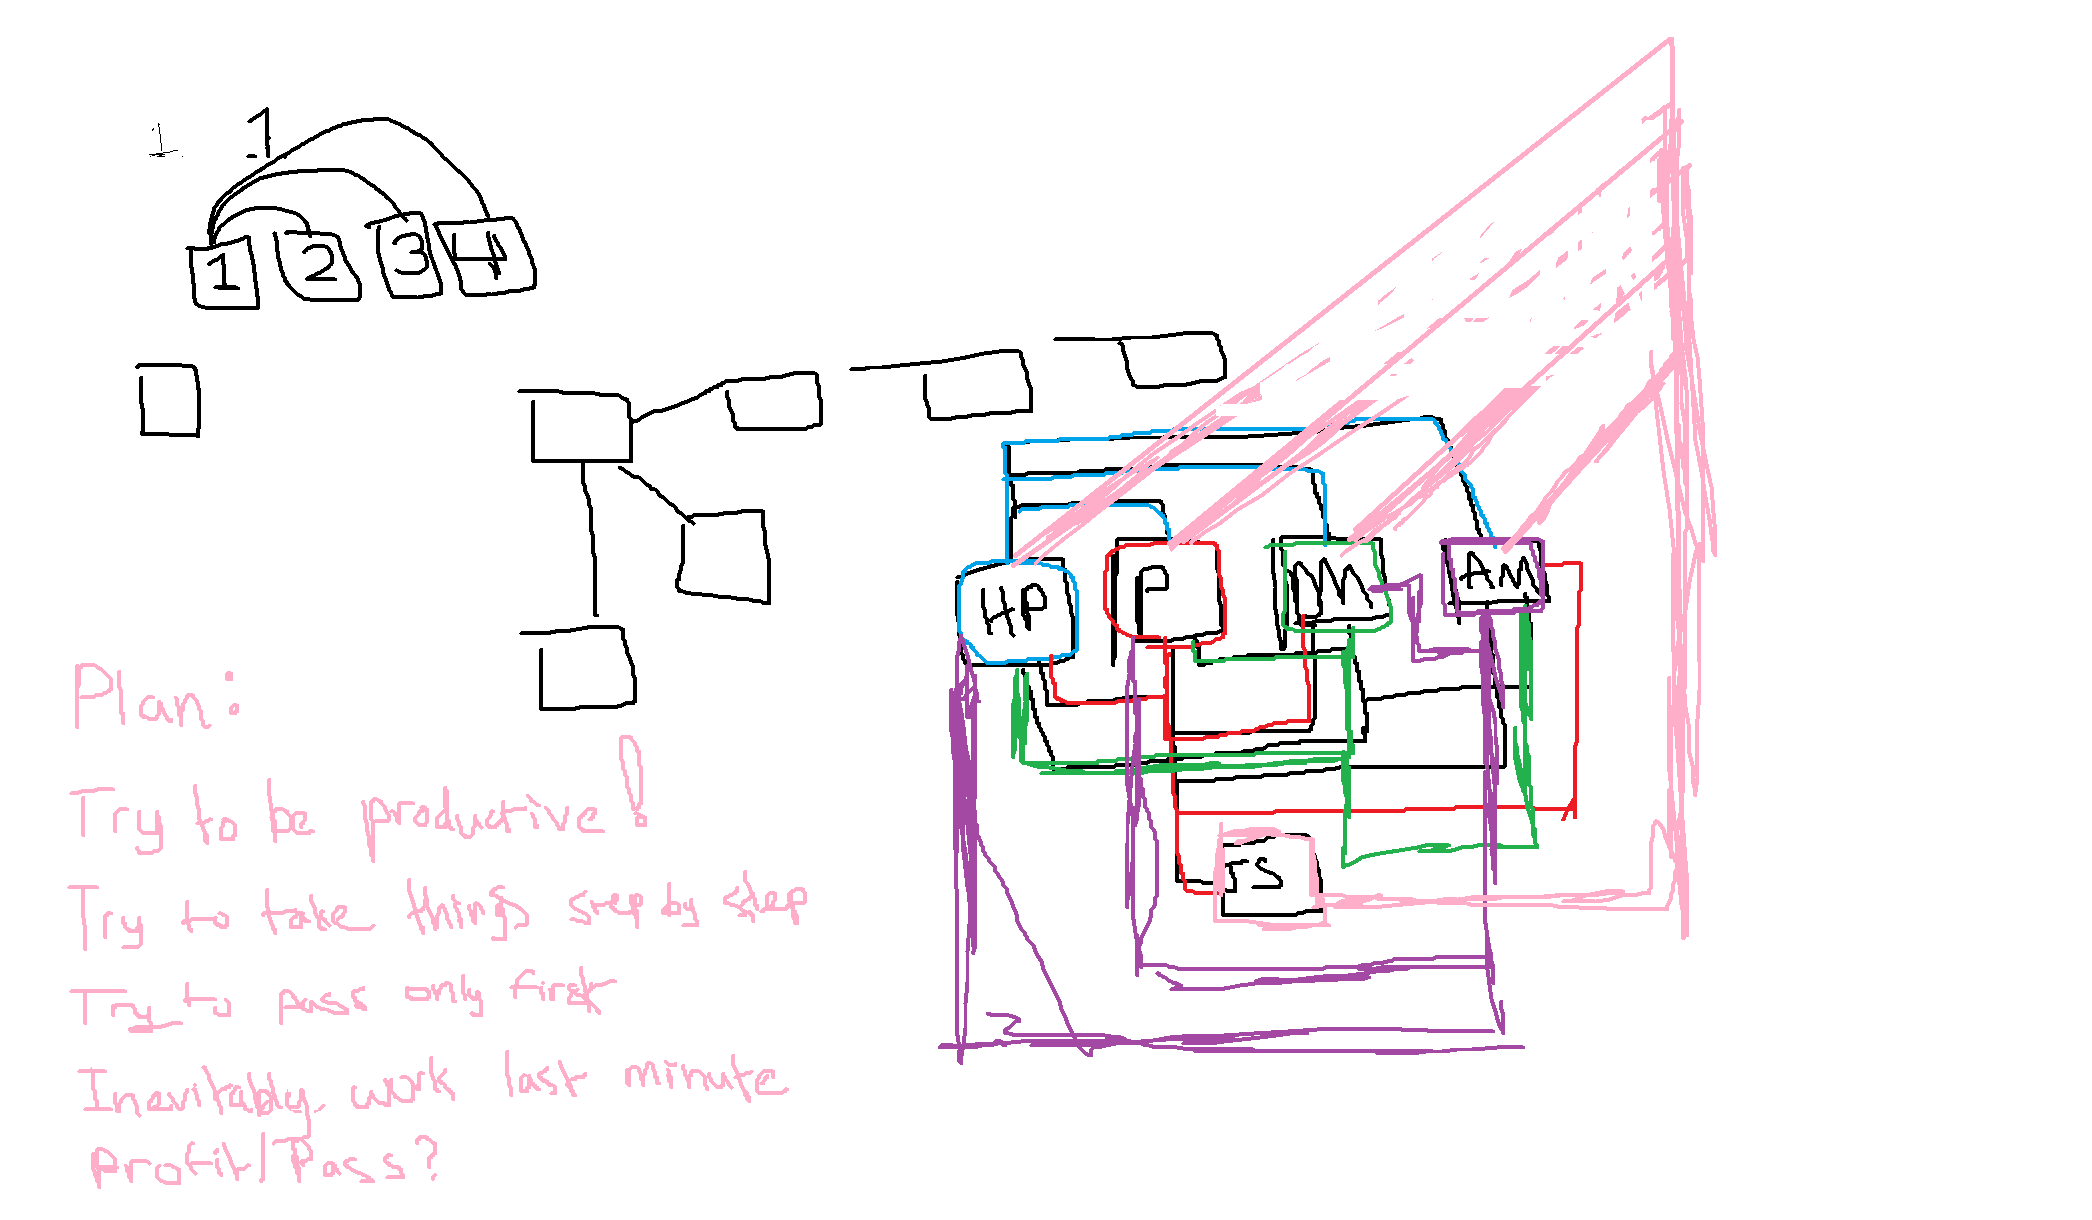 1 1
1 2 3 4
HP P M AM
TS
Plan:
Try to be productive!
Try to take things step by step
Try to pass only first
Inevitably work last minute
Profit/Pass?